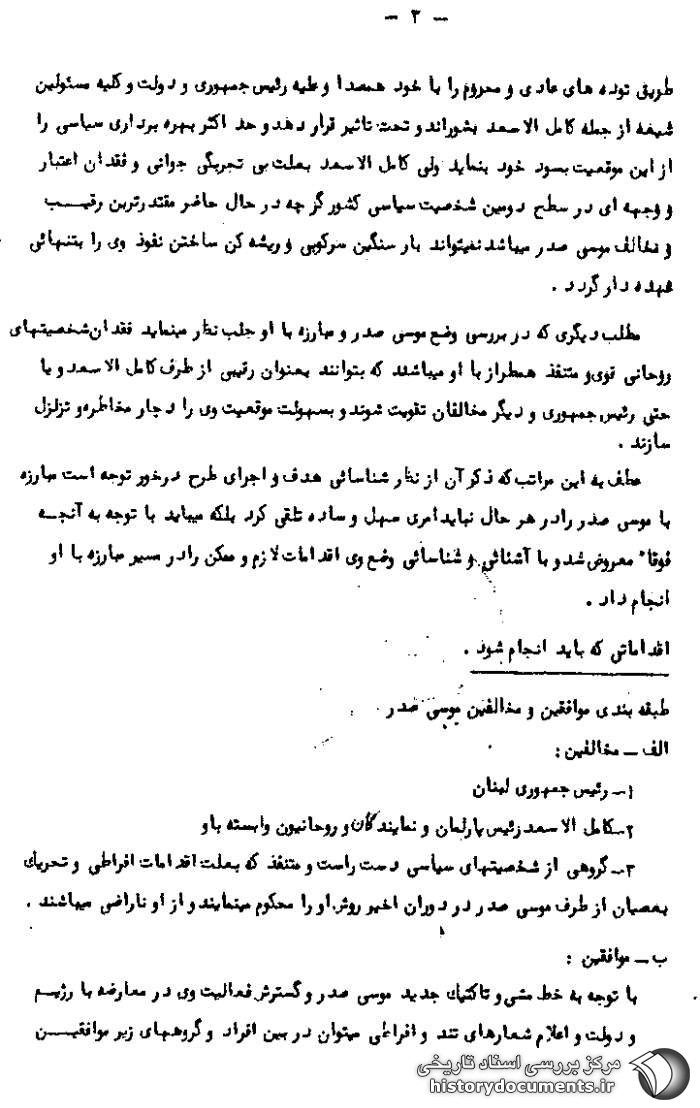 — ۳ —
طریق توده های عادی و محروم را با خود همصدا و علیه رئیس جمهوری و دولت و کلیه مسئولین
شیعه از جمله کامل الاسعد بشوراند و تحت تاثیر قرار دهد و حد اکثر بهره برداری سیاسی را
از این موقعیت بسود خود بنماید ولی کامل الاسعد بعلت بی تجربگی جوانی و فقدان اعتبار
و وجهه ای در سطح دومین شخصیت سیاسی کشور گرچه در حال حاضر مقتدرترین رقیب
و مخالف موسی صدر میباشد نمیتواند بار سنگین سرکوبی و ریشه کن ساختن نفوذ وی را بتنهائی
عهده دار گردد .
مطلب دیگری که در بررسی وضع موسی صدر و مبارزه با او جلب نظر مینماید فقدان شخصیتهای
روحانی قوی و متنفذ همطراز با او میباشند که بتوانند بعنوان رقیبی از طرف کامل الاسعد و یا
حتی رئیس جمهوری و دیگر مخالفان تقویت شوند و بسهولت موقعیت وی را دچار مخاطره و تزلزل
سازند .
عطف به این مراتب که ذکر آن از نظر شناسائی هدف و اجرای طرح درخور توجه است مبارزه
با موسی صدر را در هر حال نباید امری سهل و ساده تلقی کرد بلکه میباید با توجه به آنچه
فوقا" معروض شد و با آشنائی و شناسائی وضع وی اقدامات لازم و ممکن را در مسیر مبارزه با او
انجام داد .
اقداماتی که باید انجام شود .
طبقه بندی موافقین و مخالفین موسی صدر
الف — مخالفین :
۱— رئیس جمهوری لبنان
۲— کامل الاسعد رئیس پارلمان و نمایندگان و روحانیون وابسته باو
۳— گروهی از شخصیتهای سیاسی دست راست و متنفذ که بعلت اقدامات افراطی و تحریک
بعصیان از طرف موسی صدر در دوران اخیر روش او را محکوم مینمایند و از او ناراضی میباشند .
ب — موافقین :
با توجه به خط مشی و تاکتیک جدید موسی صدر و گسترش فعالیت وی در معارضه با رژیم
و دولت و اعلام شعارهای تند و افراطی میتوان در بین افراد و گروههای زیر موافقین
مرکز بررسی اسناد تاریخی
historydocuments.ir